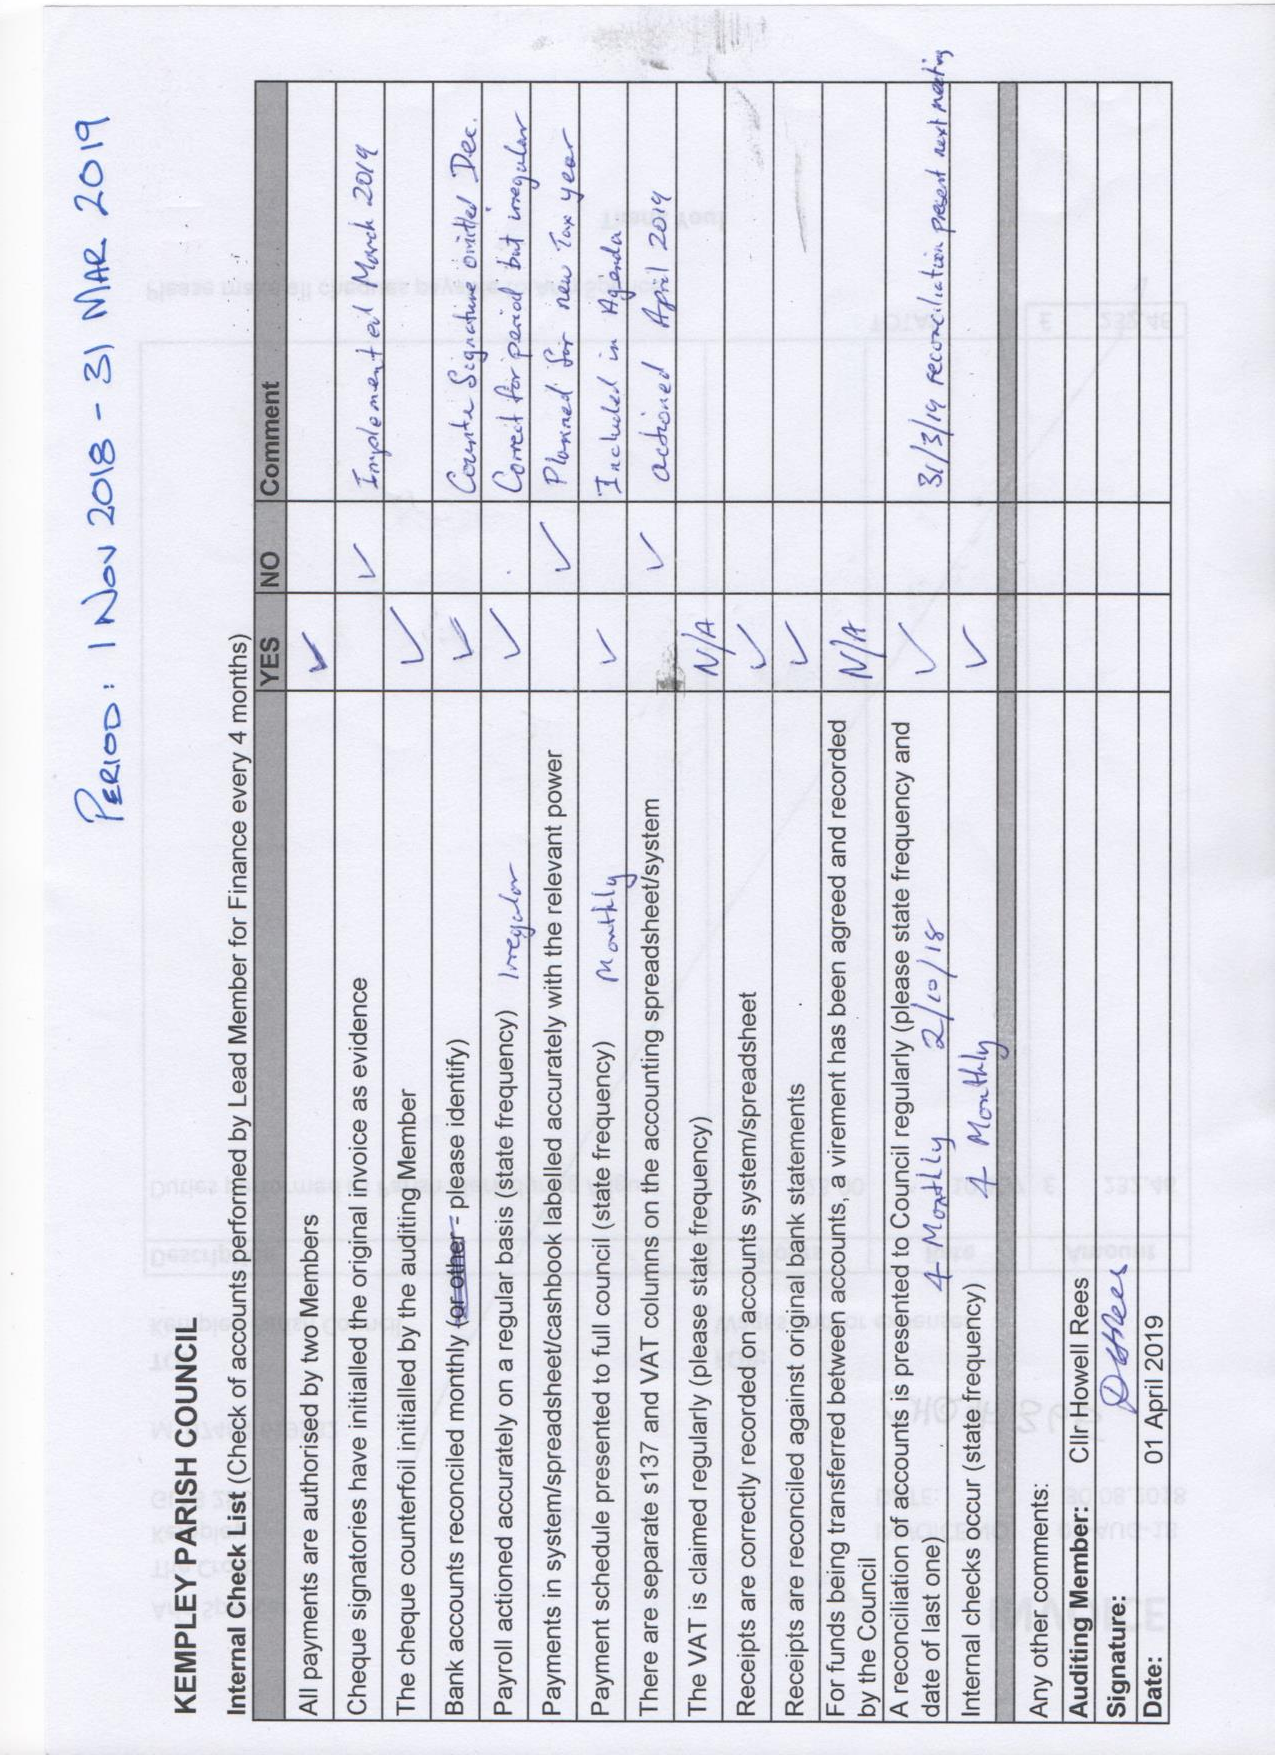 PERIOD: 1 NOV 2018 - 31 MAR 2019
KEMPLEY PARISH COUNCIL
Internal Check List (Check of accounts perfomed by Lead Member for Finance every 4 months)
YES NO Comment
All payments are authorised by two Members ✓
Cheque signatories have initialled the original invoice as evidence ✓ Implemented March 2019
The cheque counterfoil initialled by the auditing Member ✓
Bank accounts reconciled monthly (or other - please identify) ✓ Counter Signature omitted Dec.
Payroll actioned accurately on a regular basis (state frequency) Irregular ✓ Correct for period but irregular
Payments in system/spreadsheet/cashbook labelled accurately with the relevant power ✓ Planned for new Tax year
Payment schedule presented to full council (state frequency) Monthly ✓ Included in Agenda
There are separate s137 and VAT columns on the accounting spreadsheet/system ✓ actioned April 2019
The VAT is claimed regularly (please state frequency) N/A
Receipts are correctly recorded on accounts system/spreadsheet ✓
Receipts are reconciled against original bank statements ✓
For funds being transferred between accounts, a virement has been agreed and recorded
by the Council N/A
A reconciliation of accounts is presented to Council regularly (please state frequency and
date of last one) 4 Monthly 2/10/18 ✓ 31/3/19 reconciliation present next meeting
Internal checks occur (state frequency) 4 Monthly ✓
Any other comments:
Auditing Member: Cllr Lowell Rees
Signature:
Date: 01 April 2019